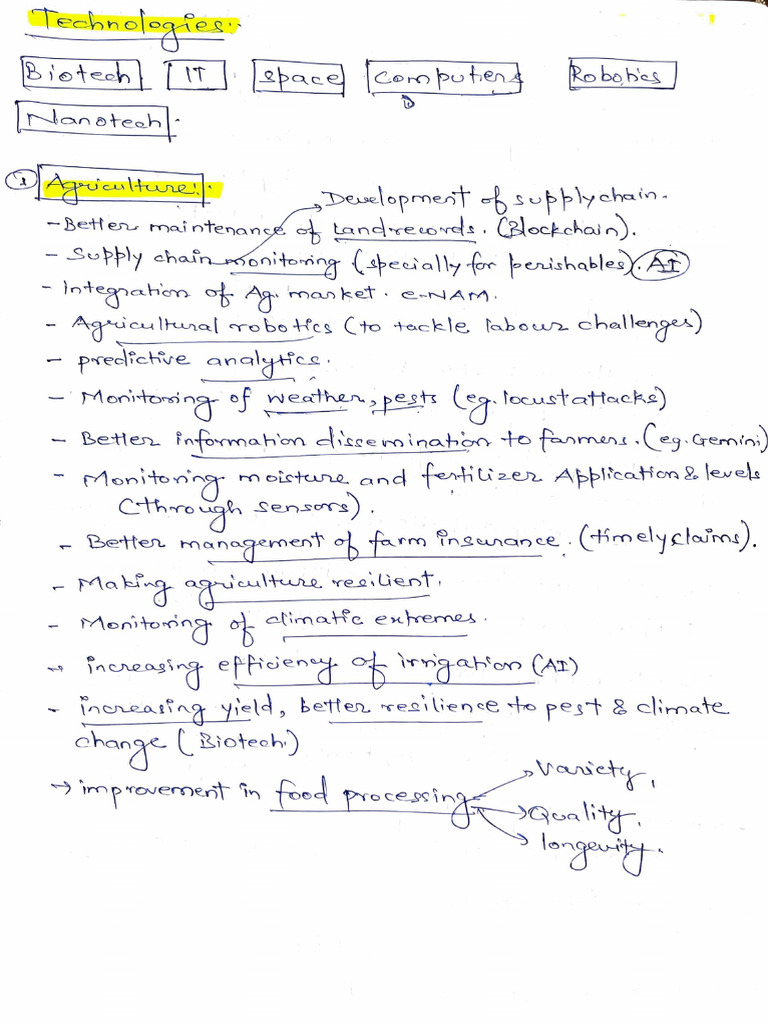 Technologies:
Biotech IT Space Computers Robotics
Nanotech.
① Agriculture:
Development of supply chain.
- Better maintenance of Land records. (Blockchain).
- Supply chain monitoring (specially for perishables). AI
- Integration of Ag. market. e-NAM.
- Agricultural robotics (to tackle labour challenges)
- predictive analytics.
- Monitoring of weather, pests (eg. locust attacks)
- Better information dissemination to farmers. (eg. Gemini)
- Monitoring moisture and fertilizer Application & levels
(through sensors).
- Better management of farm insurance. (timely claims).
- Making agriculture resilient.
- Monitoring of climatic extremes.
→ increasing efficiency of irrigation (AI)
- increasing yield, better resilience to pest & climate
change (Biotech.)
→ improvement in food processing → Variety,
→ Quality,
→ longevity.